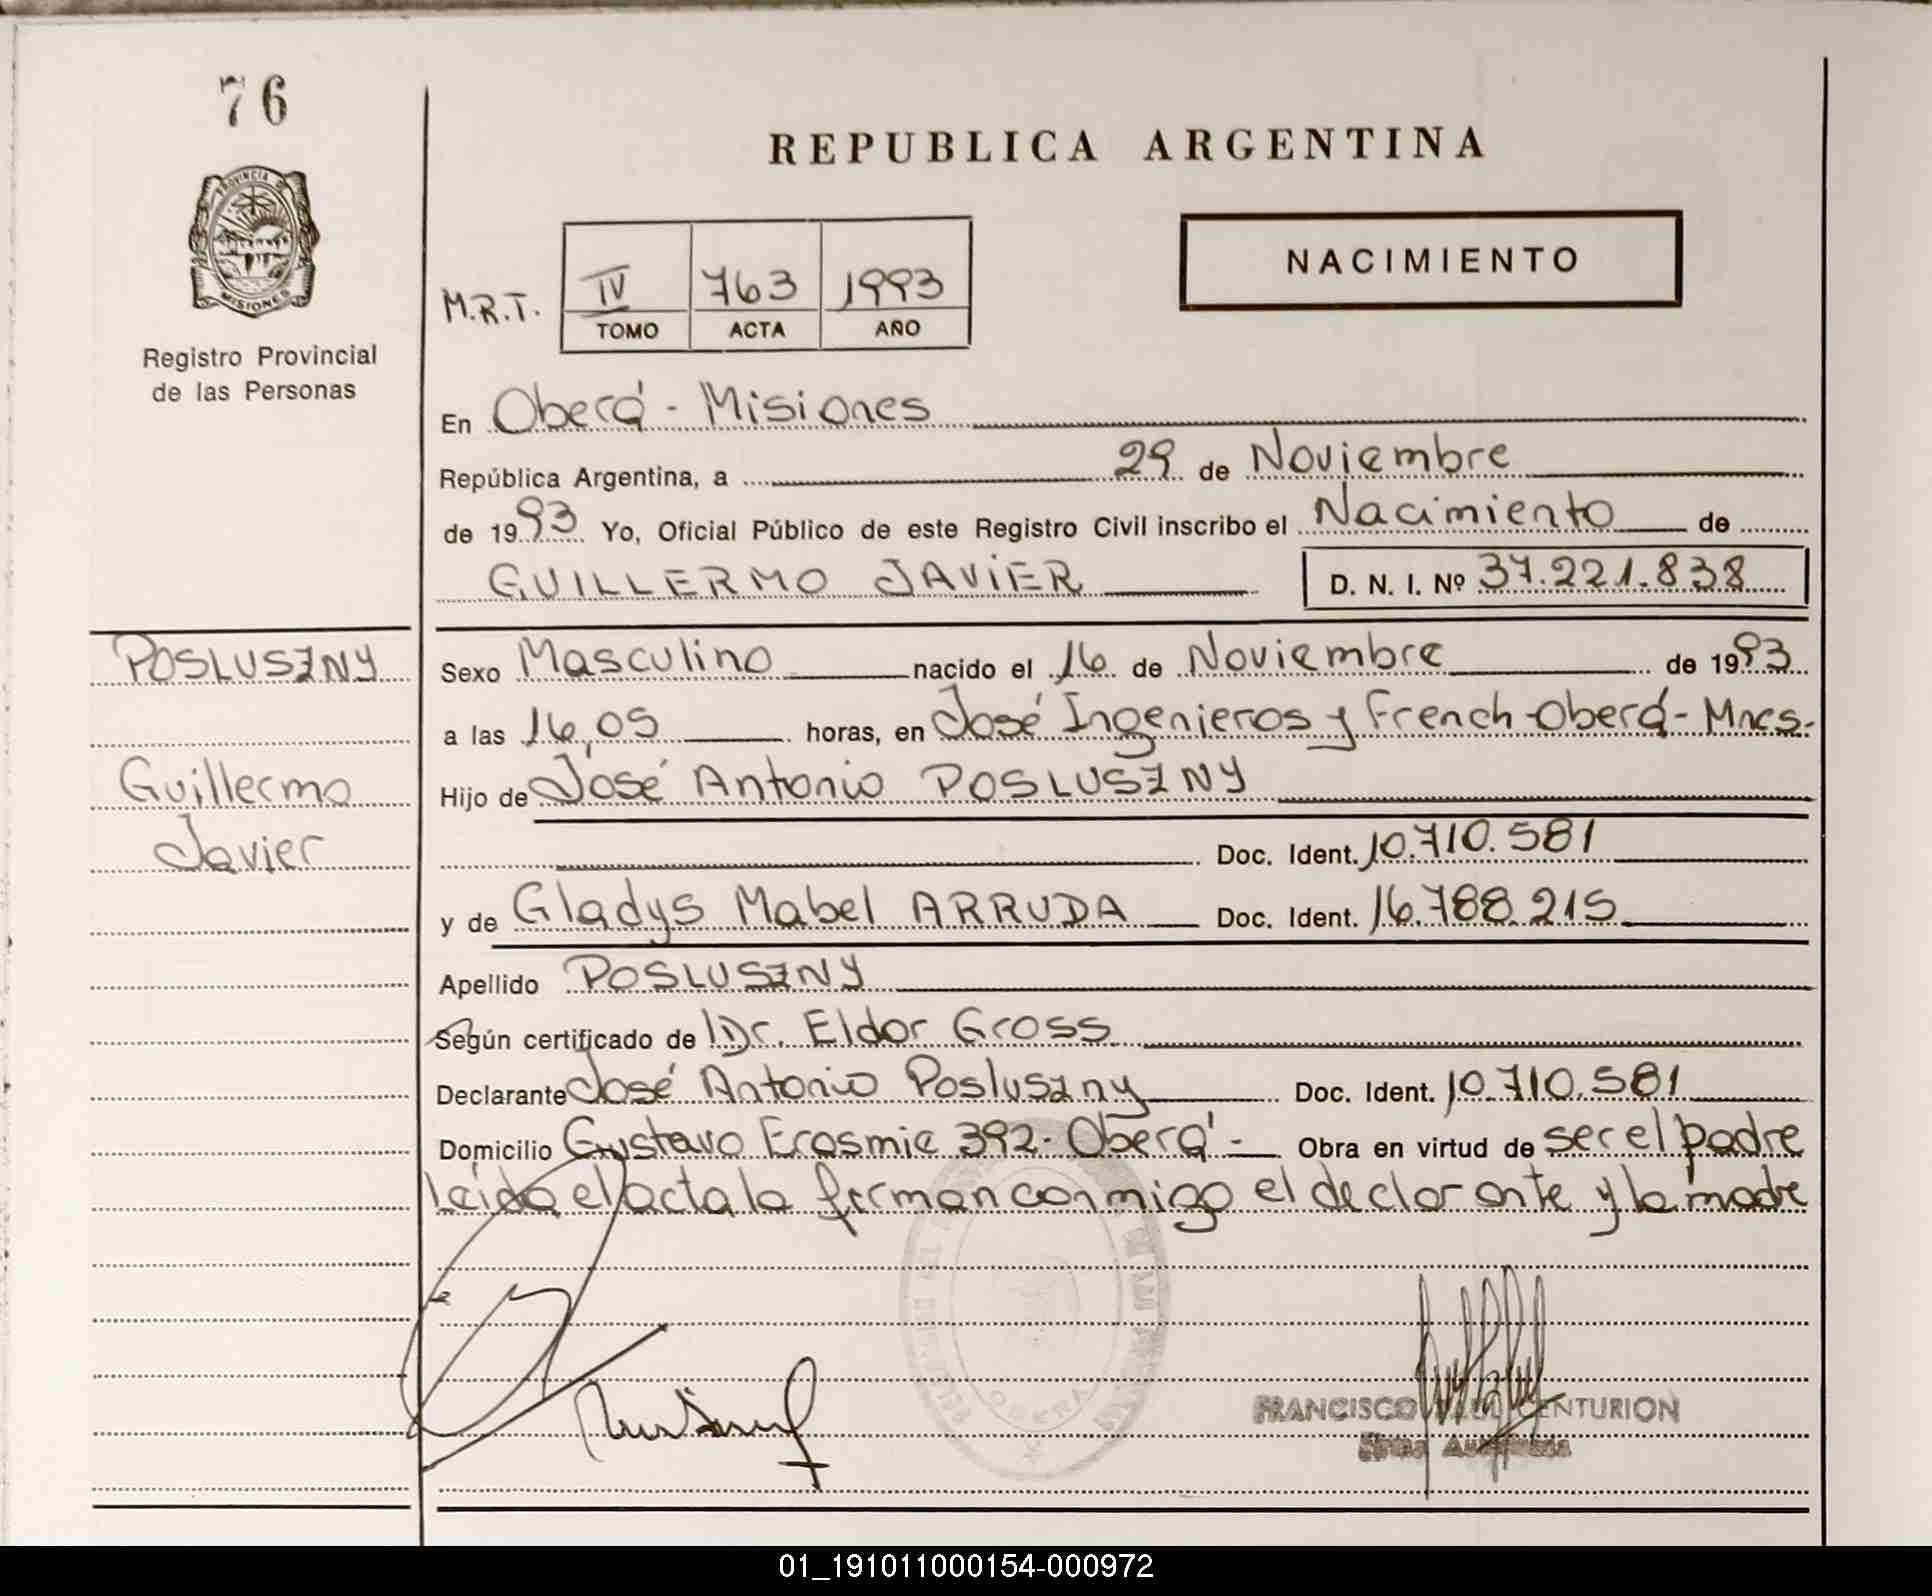 76
PROVINCIA DE
MISIONES
Registro Provincial
de las Personas
REPUBLICA ARGENTINA
NACIMIENTO
M.R.T. IV 763 1993
TOMO ACTA AÑO
En Oberá - Misiones
República Argentina, a 29 de Noviembre
de 1993 Yo, Oficial Público de este Registro Civil inscribo el Nacimiento de
GUILLERMO JAVIER D. N. I. Nº 37.221.838
POSLUSZNY
Guillermo
Javier
Sexo Masculino nacido el 16 de Noviembre de 1993
a las 16,05 horas, en José Ingenieros y French-Oberá-Mnes.
Hijo de José Antonio POSLUSZNY
Doc. Ident. 10.710.581
y de Gladys Mabel ARRUDA Doc. Ident. 16.788.215
Apellido POSLUSZNY
Según certificado de Dr. Eldor Gross
Declarante José Antonio Posluszny Doc. Ident. 10.710.581
Domicilio Gustavo Erasmie 392- Oberá - Obra en virtud de ser el padre
Leída el acta la firman conmigo el declarante y la madre
OBERA
FRANCISCO CENTURION
Firma Autorizada
01_191011000154-000972